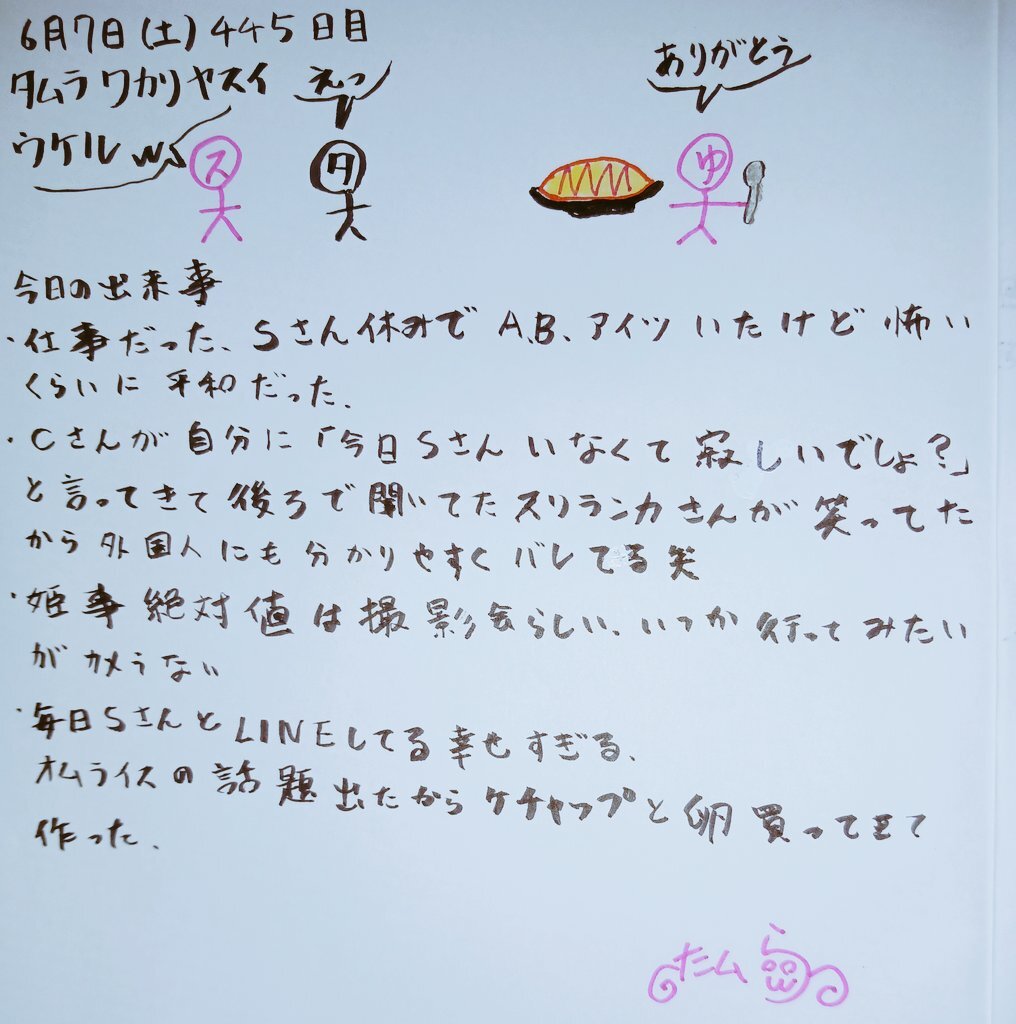 6月7日(土)445日目
タムラワカリヤスイ
ウケルww
えっ
ありがとう
ス
タ
ゆ
今日の出来事
・仕事だった、Sさん休みでA、B、アイツいたけど怖い
くらいに平和だった、
・Cさんが自分に「今日Sさんいなくて寂しいでしょ?」
と言ってきて後ろで聞いてたスリランカさんが笑ってた
から外国人にも分かりやすくバレてる笑
・姫事絶対値は撮影会らしい、いつか行ってみたい
がカメラない
・毎日SさんとLINEしてる幸せすぎる、
オムライスの話題出たからケチャップと卵買ってきて
作った、
たムら